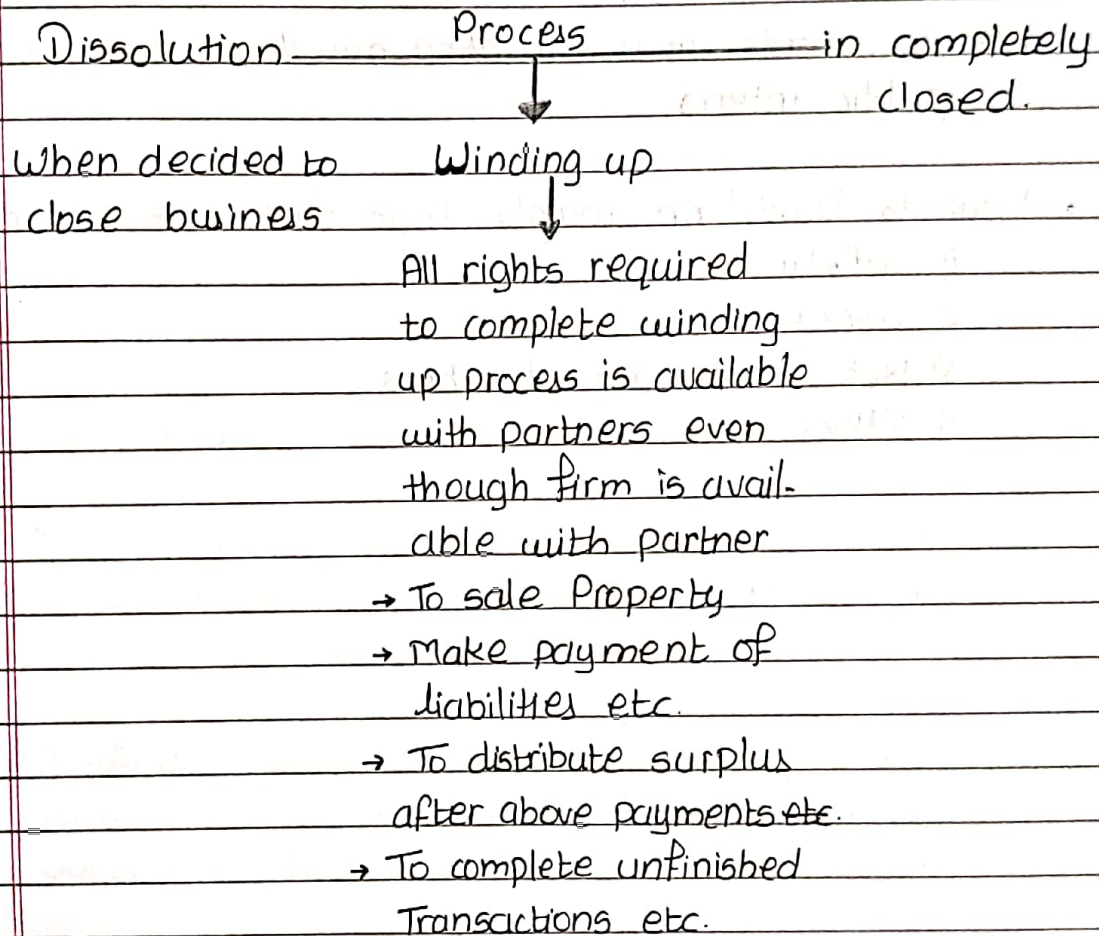 Process
Dissolution in completely
closed.
When decided to Winding up
close business
All rights required
to complete winding
up process is available
with partners even
though firm is avail-
able with partner
→ To sale Property
→ Make payment of
liabilities etc.
→ To distribute surplus
after above payments etc.
→ To complete unfinished
Transactions etc.